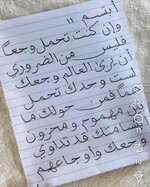 أبتسم "
وإن كنت تحمل وجعاً
فليس من الضروري
أن نري العالم وجعك
لست وحدك تحمل
هماً فمن حولك ما
بهموم ومحزون
متك قد تداوي
وجعك وأوجاعهم